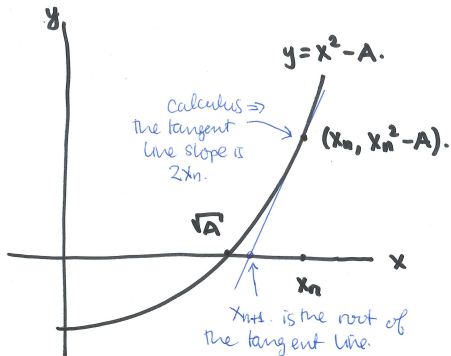 y
y = x² - A.
calculus ⇒
the tangent
line slope is
2xₙ.
(xₙ, xₙ² - A).
√A
x
xₙ
xₙ₊₁ is the root of
the tangent line.